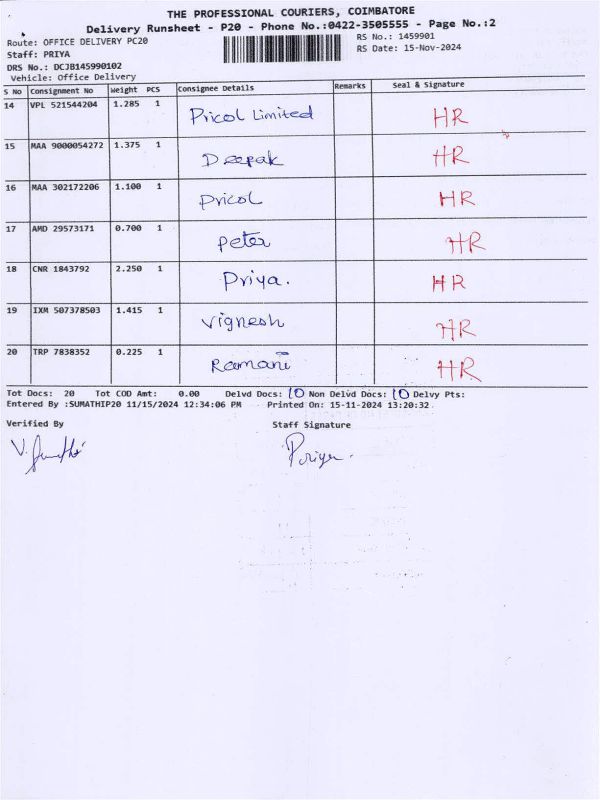 THE PROFESSIONAL COURIERS, COIMBATORE
Delivery Runsheet - P20 - Phone No.:0422-3505555 - Page No.:2
Route: OFFICE DELIVERY PC20 RS No.: 1459901
Staff: PRIYA RS Date: 15-Nov-2024
DRS No.: DCJB145990102
Vehicle: Office Delivery
S No Consignment No Weight PCS Consignee Details Remarks Seal & Signature
14 VPL 521544204 1.285 1 Pricol Limited HR
15 MAA 9000054272 1.375 1 Deepak HR
16 MAA 302172206 1.100 1 Pricol HR
17 AMD 29573171 0.700 1 Peter HR
18 CNR 1843792 2.250 1 Priya. HR
19 IXM 507378503 1.415 1 Vignesh HR
20 TRP 7838352 0.225 1 Ramani HR
Tot Docs: 20 Tot COD Amt: 0.00 Delvd Docs: 10 Non Delvd Docs: 10 Delvy Pts:
Entered By :SUMATHIP20 11/15/2024 12:34:06 PM Printed On: 15-11-2024 13:20:32
Verified By Staff Signature
V. Sumathi Priya.